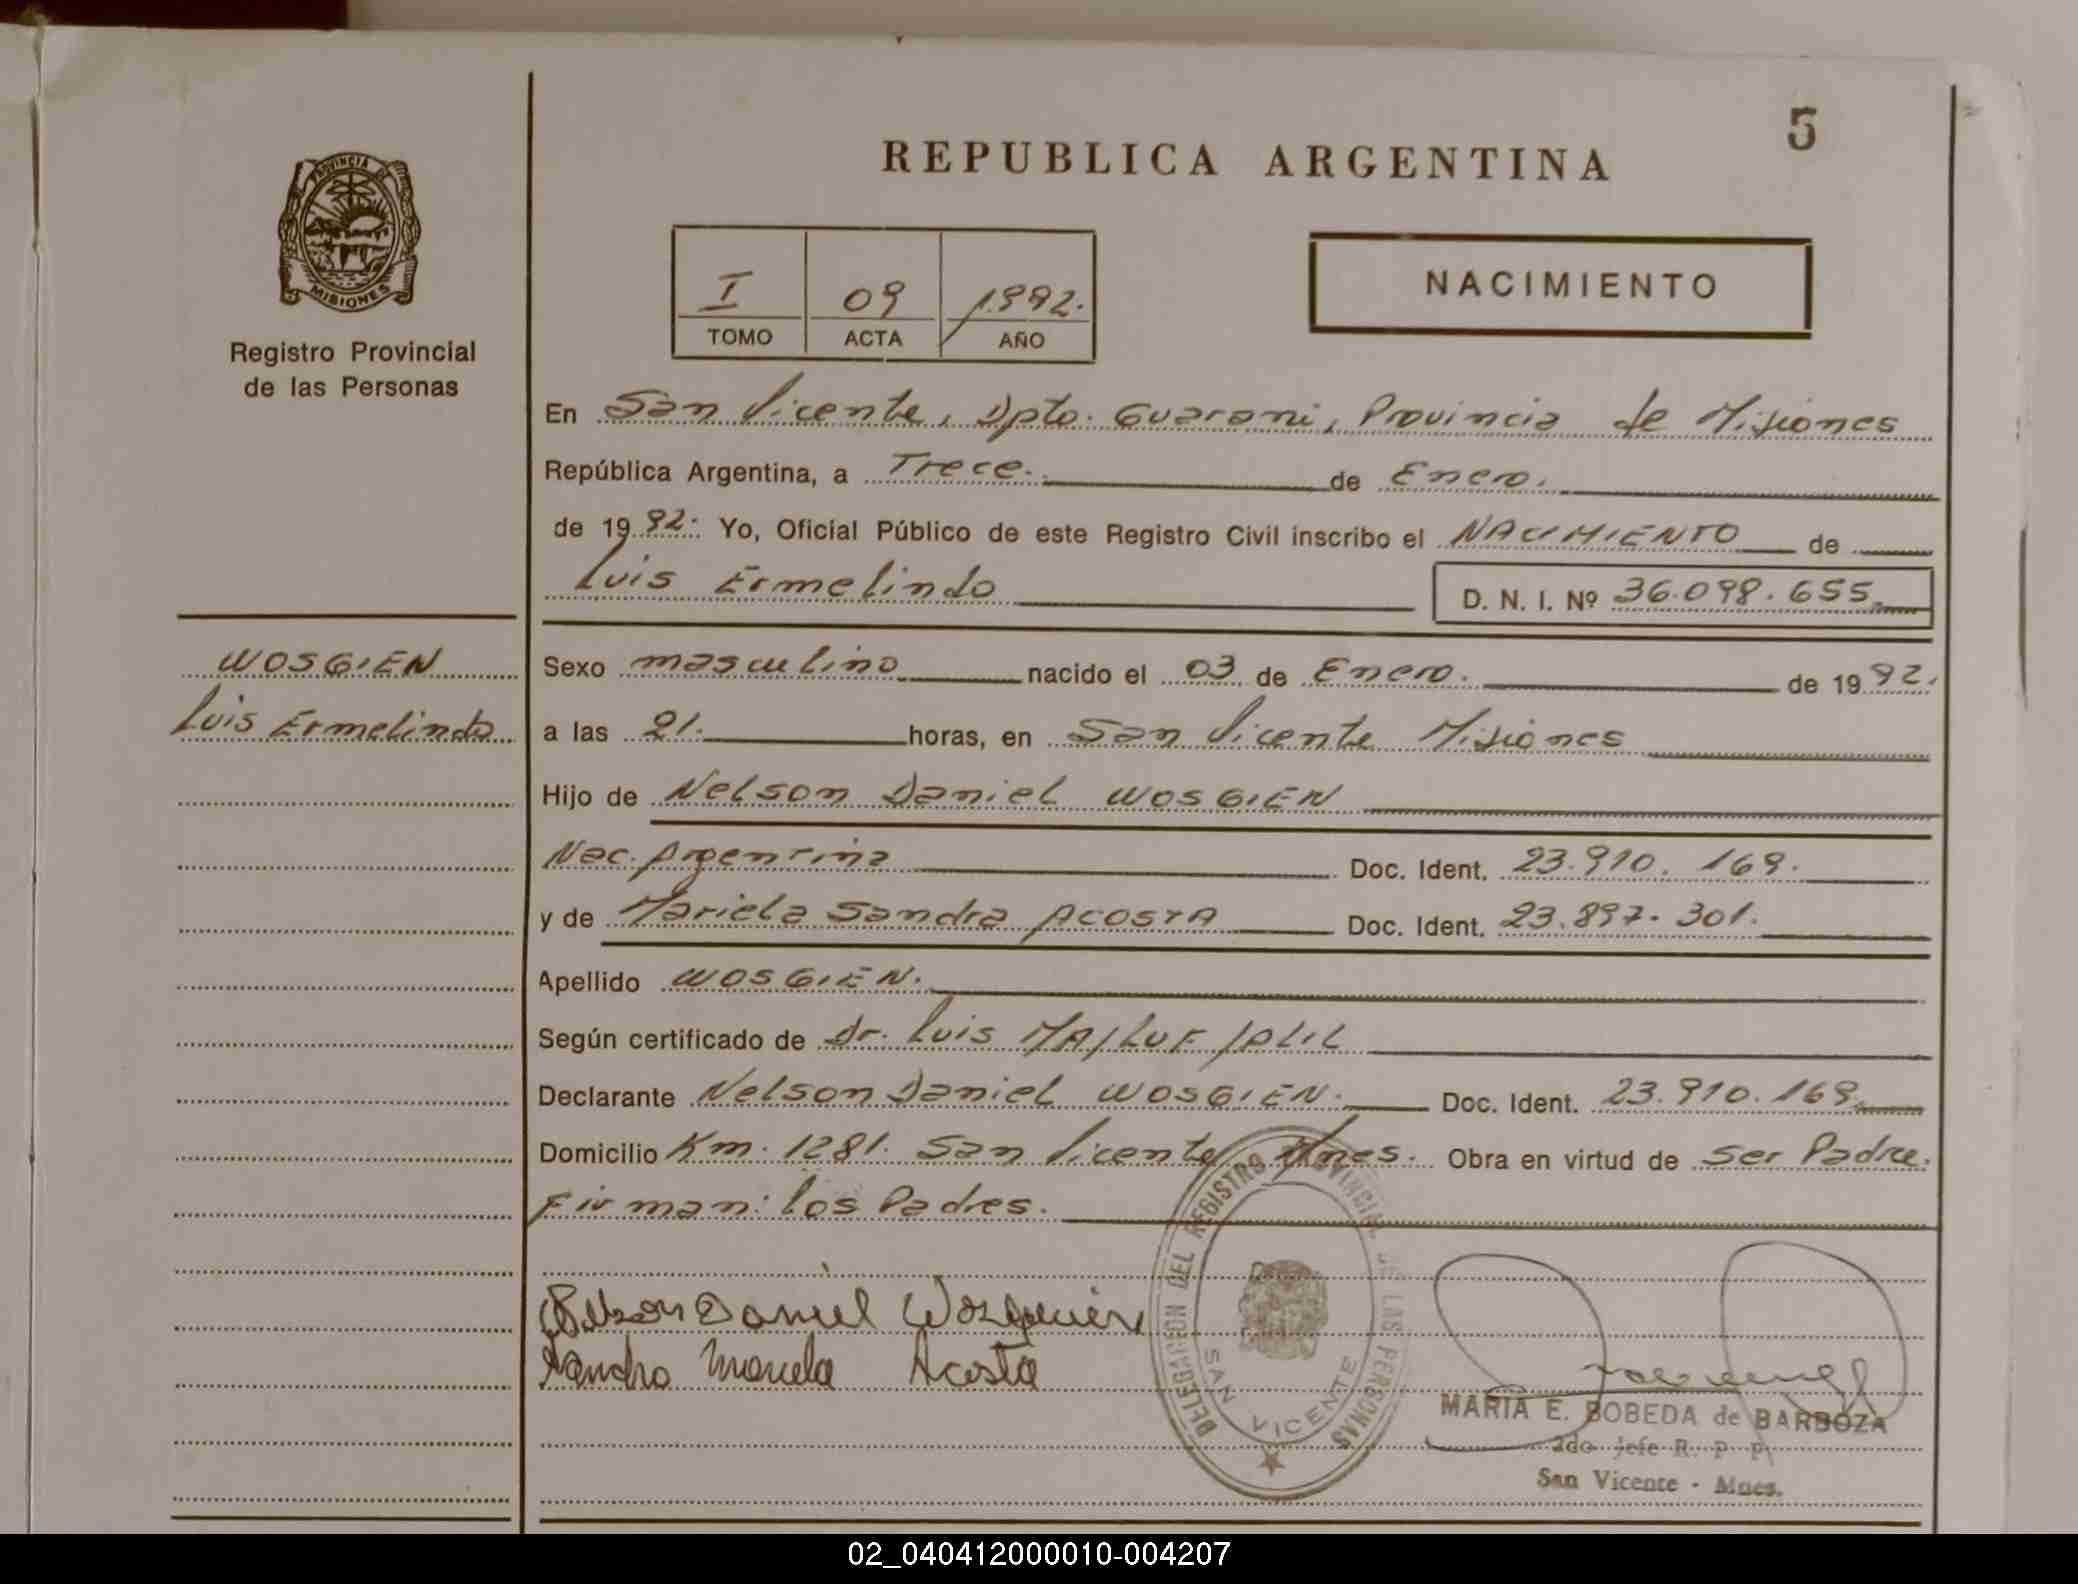 5
REPUBLICA ARGENTINA
PROVINCIA DE
MISIONES
Registro Provincial
de las Personas
I 09 1992.
TOMO ACTA AÑO
NACIMIENTO
En San Vicente, Dpto. Guarani, Provincia de Misiones
República Argentina, a Trece. de Enero.
de 1992. Yo, Oficial Público de este Registro Civil inscribo el NACIMIENTO de
Luis Ermelindo D. N. I. Nº 36.098.655.
WOSGIEN
Luis Ermelindo
Sexo masculino nacido el 03 de Enero. de 1992.
a las 21. horas, en San Vicente Misiones
Hijo de Nelson Daniel WOSGIEN
Nac. Argentina Doc. Ident. 23.910.169.
y de Mariela Sandra ACOSTA Doc. Ident. 23.897.301.
Apellido WOSGIEN.
Según certificado de Dr. Luis MAJLUF JALIL
Declarante Nelson Daniel WOSGIEN. Doc. Ident. 23.910.169.
Domicilio Km. 1281. San Vicente Mnes. Obra en virtud de Ser Padre.
Firman: los Padres.
Nelson Daniel
Mariela Acosta
DELEGACION DEL REGISTRO PROVINCIAL DE LAS PERSONAS
SAN VICENTE
MARIA E. BOBEDA de BARBOZA
2do jefe R. P. P.
San Vicente - Mnes.
02_040412000010-004207